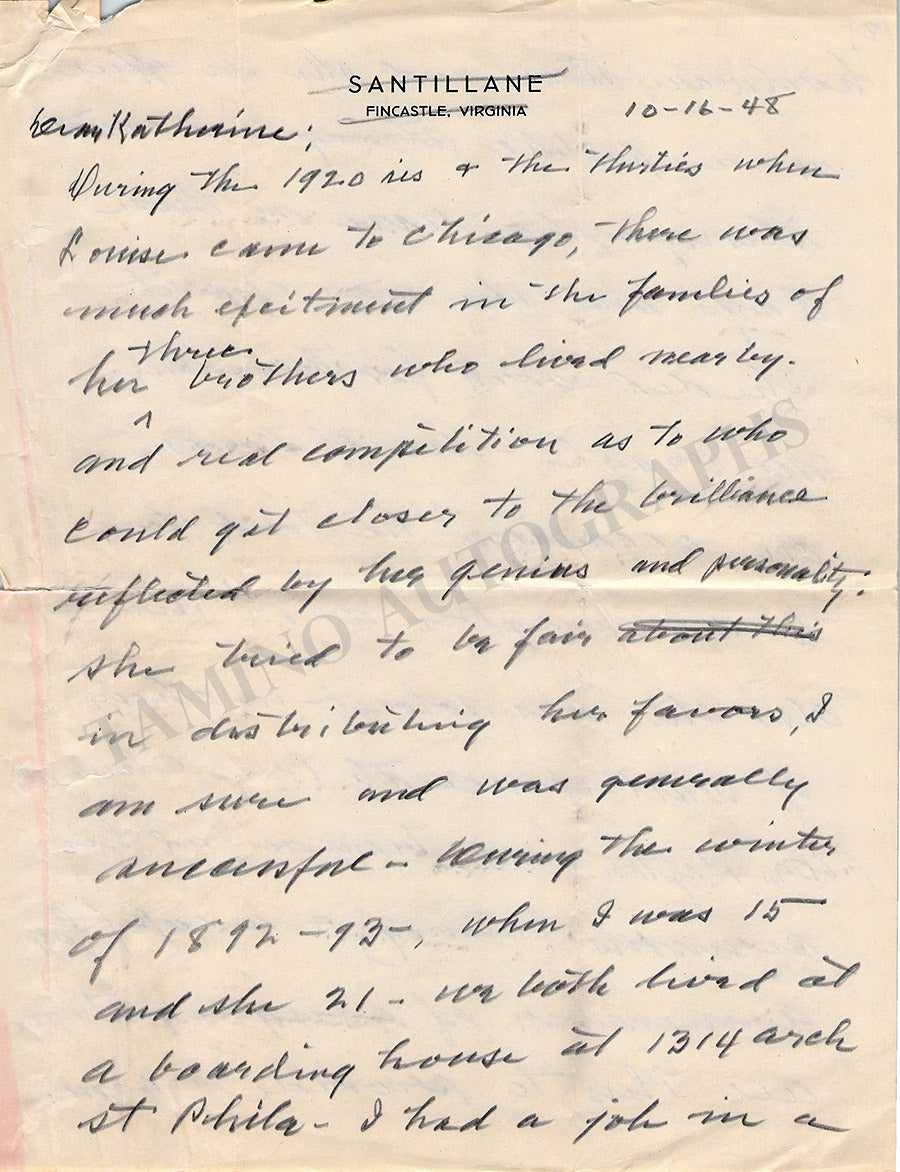 SANTILLANE
FINCASTLE, VIRGINIA
10-16-48
Dear Katherine;
During the 1920 ies & the thirties when
Louise came to Chicago, there was
much exeitment in the families of
her three brothers who lived near by.
and real competition as to who
could get closer to the brilliance
reflected by her genius and personality.
she tried to be fair about this
in distributing her favors, I
am sure and was generally
successful - During the winter
of 1892-93-, when I was 15
and she 21 - we both lived at
a boarding house at 1314 arch
st Phila - I had a job in a
TAMINO AUTOGRAPHS